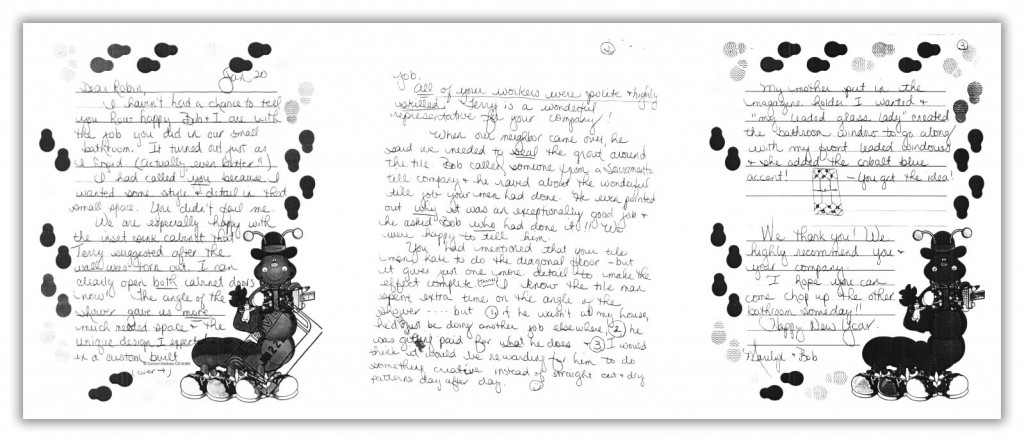 Jan 20
Dear Robin,
I haven't had a chance to tell
you how happy Bob & I are with
the job you did in our small
bathroom. It turned out just as
I hoped (actually even better!)
I had called you because I
wanted some style & detail in that
small space. You didn't fail me.
We are especially happy with
the inset sink cabinet that
Terry suggested after the
wall was torn out. I can
clearly open both cabinet doors
now! The angle of the
shower gave us more
much needed space & the
unique design I expected
in a custom built
(over→)
②
job.
All of your workers were polite & highly
skilled. Terry is a wonderful
representative for your company!
When our neighbor came over, he
said we needed to seal the grout around
the tile. Bob called someone from a Sacramento
tile company & he raved about the wonderful
tile job your men had done. He even pointed
out why it was an exceptionally good job &
he asked Bob who had done it!! We
were happy to tell him.
You had mentioned that your tile
men hate to do the diagonal floor - but
it gives just one more detail to make the
effect complete. I know the tile man
spent extra time on the angle of the
shower .... but ① if he wasn't at my house,
he'd just be doing another job elsewhere, ② he
was getting paid for what he does & ③ I would
think it would be rewarding for him to do
something creative instead of straight cut & dry
patterns day after day.
③
My mother put in the
magazine holder I wanted &
"my leaded glass lady" created
the bathroom window to go along
with my front leaded windows
& she added the cobalt blue
accent! - You get the idea!
We thank you! We
highly recommend you &
your company.
I hope you can
come chop up the other
bathroom someday!
Happy New Year.
Marilyn & Bob